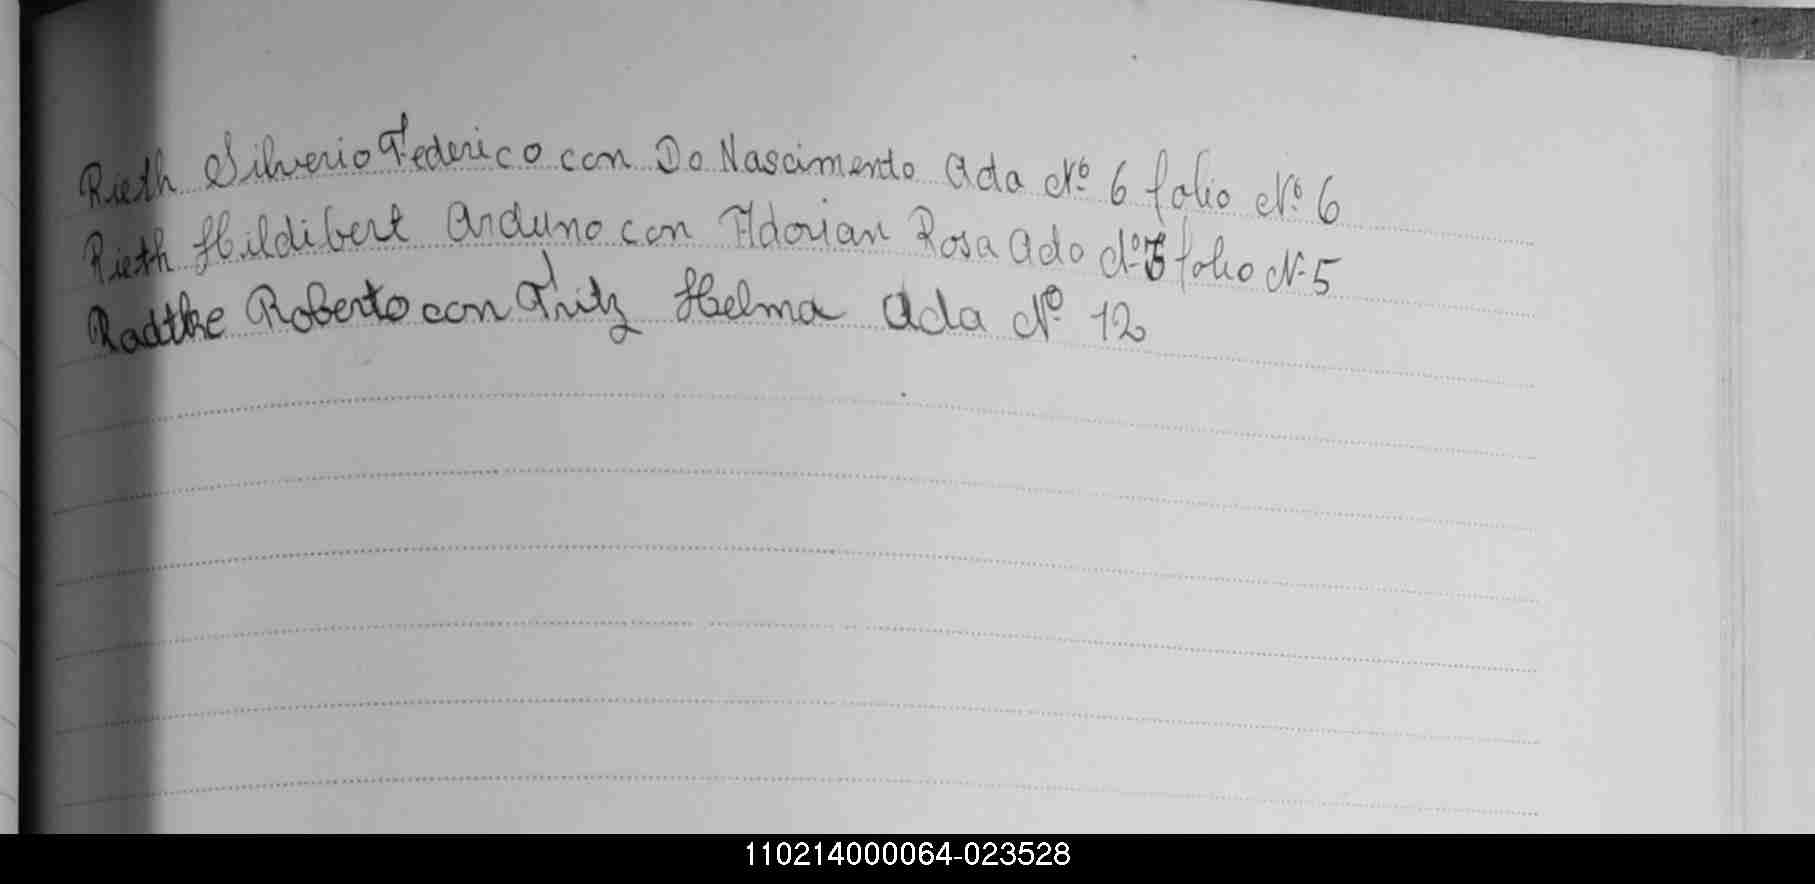 Rieth Silverio Federico con Do Nascimento Acta Nº 6 folio Nº 6
Rieth Hildibert Arduno con Adorian Rosa Acta Nº 5 folio Nº 5
Radtke Roberto con Fritz Helma Acta Nº 12
110214000064-023528